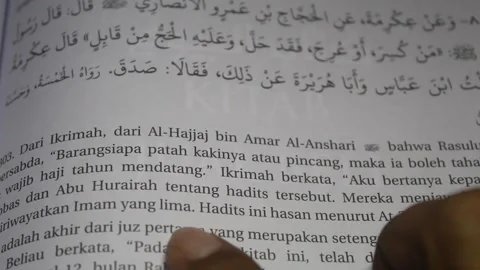 وَعَنْ عِكْرِمَةَ، عَنِ الْحَجَّاجِ بْنِ عَمْرٍو الْأَنْصَارِيِّ ﷺ قَالَ: قَالَ رَسُولُ
ﷺ: «مَنْ كُسِرَ، أَوْ عَرِجَ، فَقَدْ حَلَّ، وَعَلَيْهِ الْحَجُّ مِنْ قَابِلٍ» قَالَ عِكْرِمَةُ
ابْنَ عَبَّاسٍ وَأَبَا هُرَيْرَةَ عَنْ ذَلِكَ، فَقَالَا: صَدَقَ. رَوَاهُ الْخَمْسَةُ،
803. Dari Ikrimah, dari Al-Hajjaj bin Amar Al-Anshari bahwa Rasulu
bersabda, "Barangsiapa patah kakinya atau pincang, maka ia boleh taha
wajib haji tahun mendatang." Ikrimah berkata, "Aku bertanya kepa
bbas dan Abu Hurairah tentang hadits tersebut. Mereka menja
iriwayatkan Imam yang lima. Hadits ini hasan menurut At-
adalah akhir dari juz pertama yang merupakan seteng
Beliau berkata, "Pada kitab ini, telah d
12, bulan Ra